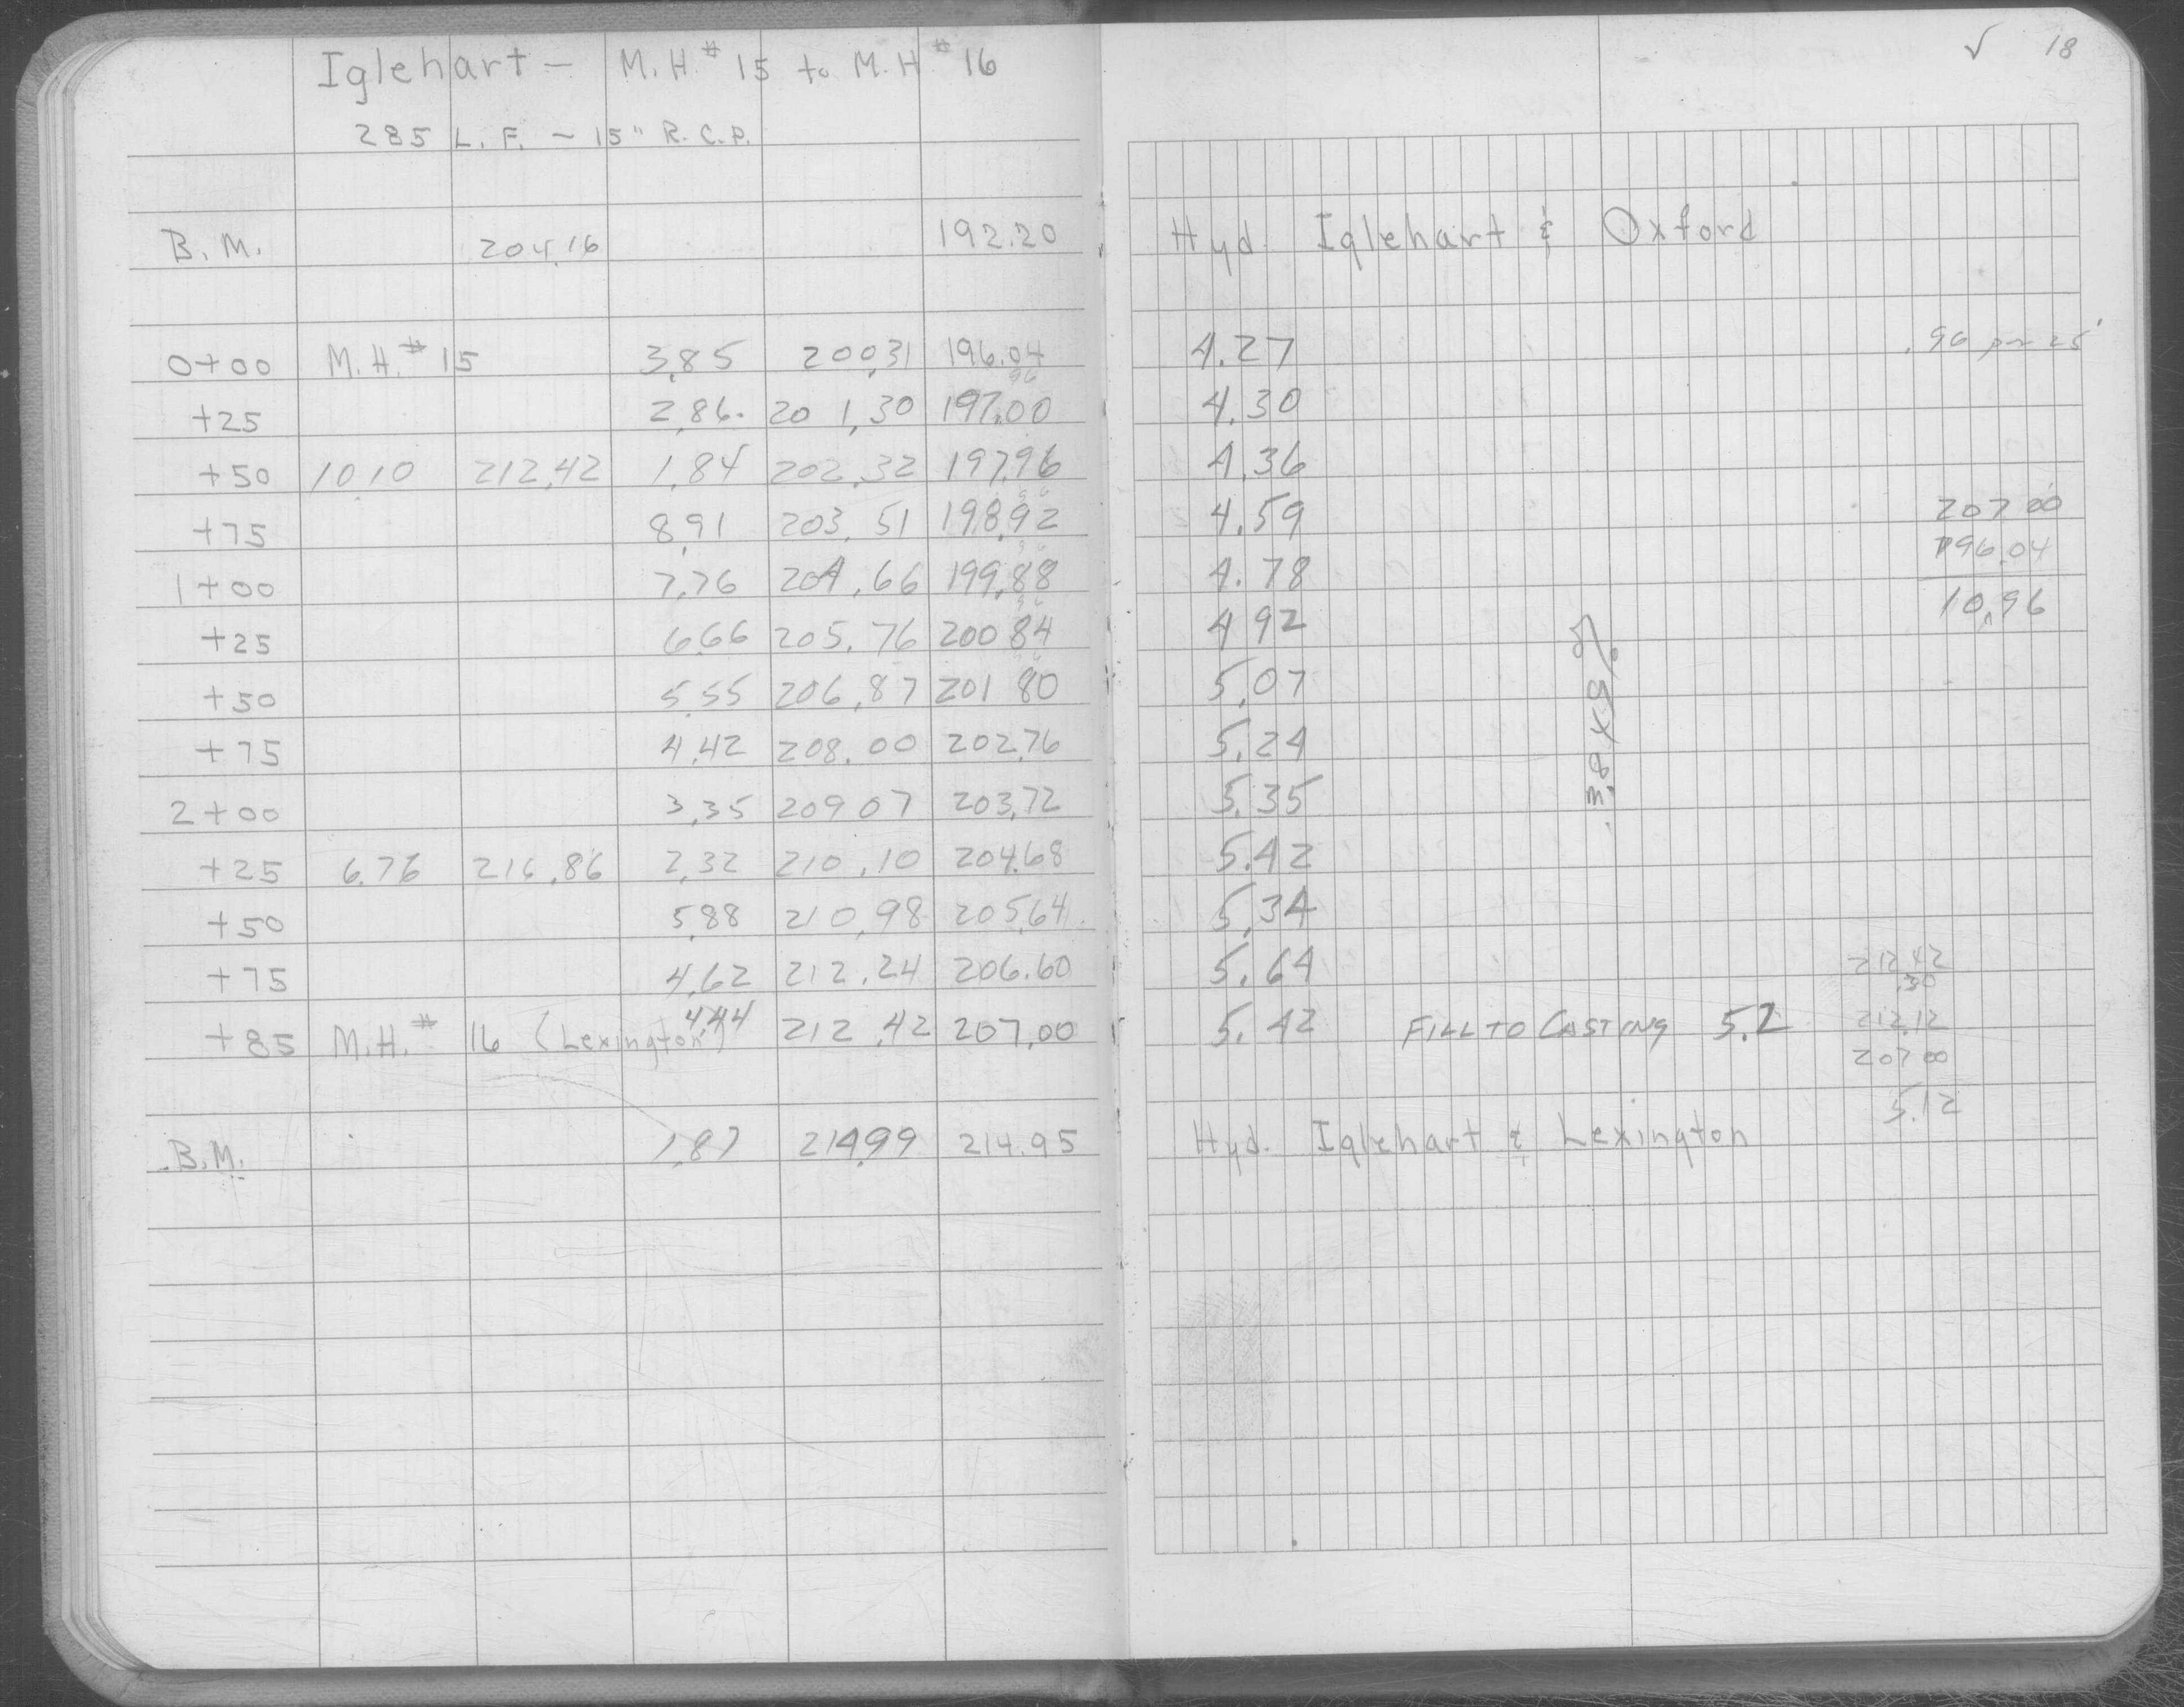 Iglehart - M.H.# 15 to M.H.# 16
285 L.F. ~ 15" R.C.P.
B.M. 204.16 192.20
0+00 M.H.# 15 3.85 200.31 196.04
96
+25 2.86 201.30 197.00
+50 10.10 212.42 1.84 202.32 197.96
96
+75 8.91 203.51 198.92
96
1+00 7.76 204.66 199.88
96
+25 6.66 205.76 200 84
+50 5.55 206.87 201 80
+75 4.42 208.00 202.76
2+00 3.35 209 07 203.72
+25 6.76 216.86 2.32 210.10 204.68
+50 5.88 210.98 205.64
+75 4.62 212.24 206.60
+85 M.H.# 16 (Lexington) 4.44 212.42 207.00
B.M. 1.87 214.99 214.95
✓ 18
Hyd. Iglehart & Oxford
4.27 .96 per 25'
4.30
4.36
4.59 207 00
196.04
4.78
10.96
4 92
5.07
5.24
5.35
3.84%
5.42
5.34
5.64 212.42
.30
5.42 FILL TO CASTING 5.2 212.12
207 00
5.12
Hyd. Iglehart & Lexington